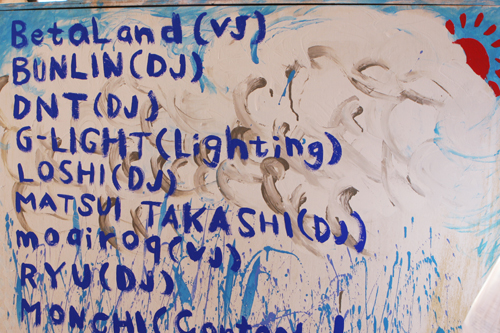 BetaLand(VJ)
BUNLIN(DJ)
DNT(DJ)
G-LIGHT(Lighting)
LOSHI(DJ)
MATSUI TAKASHI(DJ)
moairoq(VJ)
RYU(DJ)